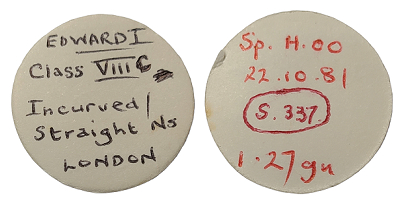 EDWARD I
Class VIII C
Incurved/
Straight Ns
LONDON
Sp. H.00
22.10.81
S. 337.
1.27 gm